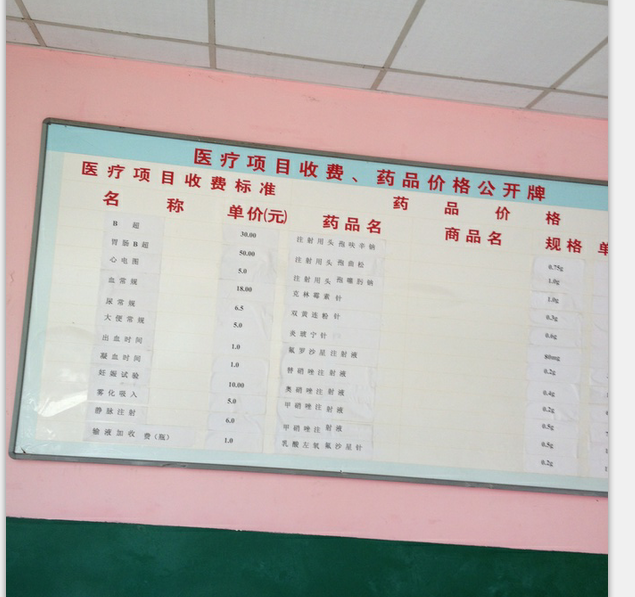 医疗项目收费、药品价格公开牌
医疗项目收费标准
药品价格
名称 单价(元)
药品名 商品名 规格 单
B超 30.00
胃肠B超 50.00
心电图 5.0
血常规 18.00
尿常规 6.5
大便常规 5.0
出血时间 1.0
凝血时间 1.0
妊娠试验 10.00
雾化吸入 5.0
静脉注射 6.0
输液加收费(瓶) 1.0
注射用头孢呋辛钠 0.75g
注射用头孢曲松 1.0g
注射用头孢噻肟钠 1.0g
克林霉素针 0.3g
双黄连粉针 0.6g
炎琥宁针 80mg
氟罗沙星注射液 0.2g
替硝唑注射液 0.4g
奥硝唑注射液 0.2g
甲硝唑注射液 0.5g
甲硝唑注射液 0.5g
乳酸左氧氟沙星针 0.2g